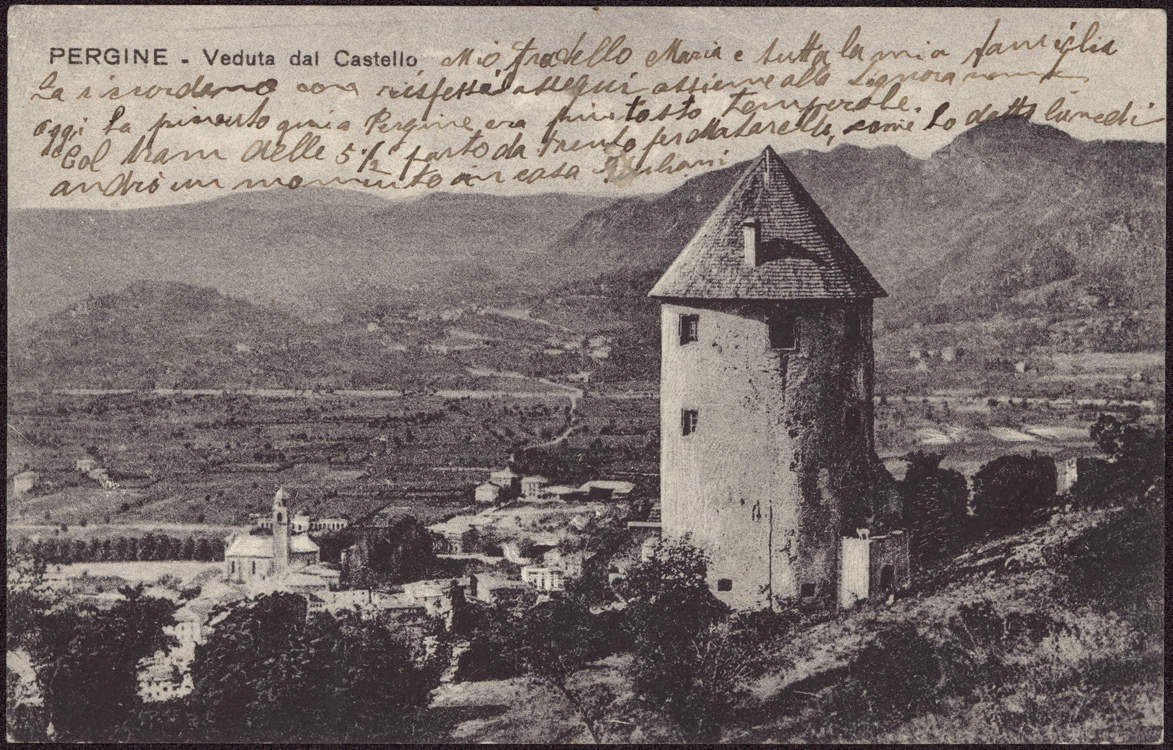 PERGINE - Veduta dal Castello
Mio fratello Maria e tutta la mia famiglia
La ricordano con rispettosi ossequi assieme alla Signora
oggi ha piovuto qui a Pergine era piuttosto temporale.
Col tram delle 5½ parto da Trento per Matarello, come ho detto lunedì
andrò un momento in casa Giuliani